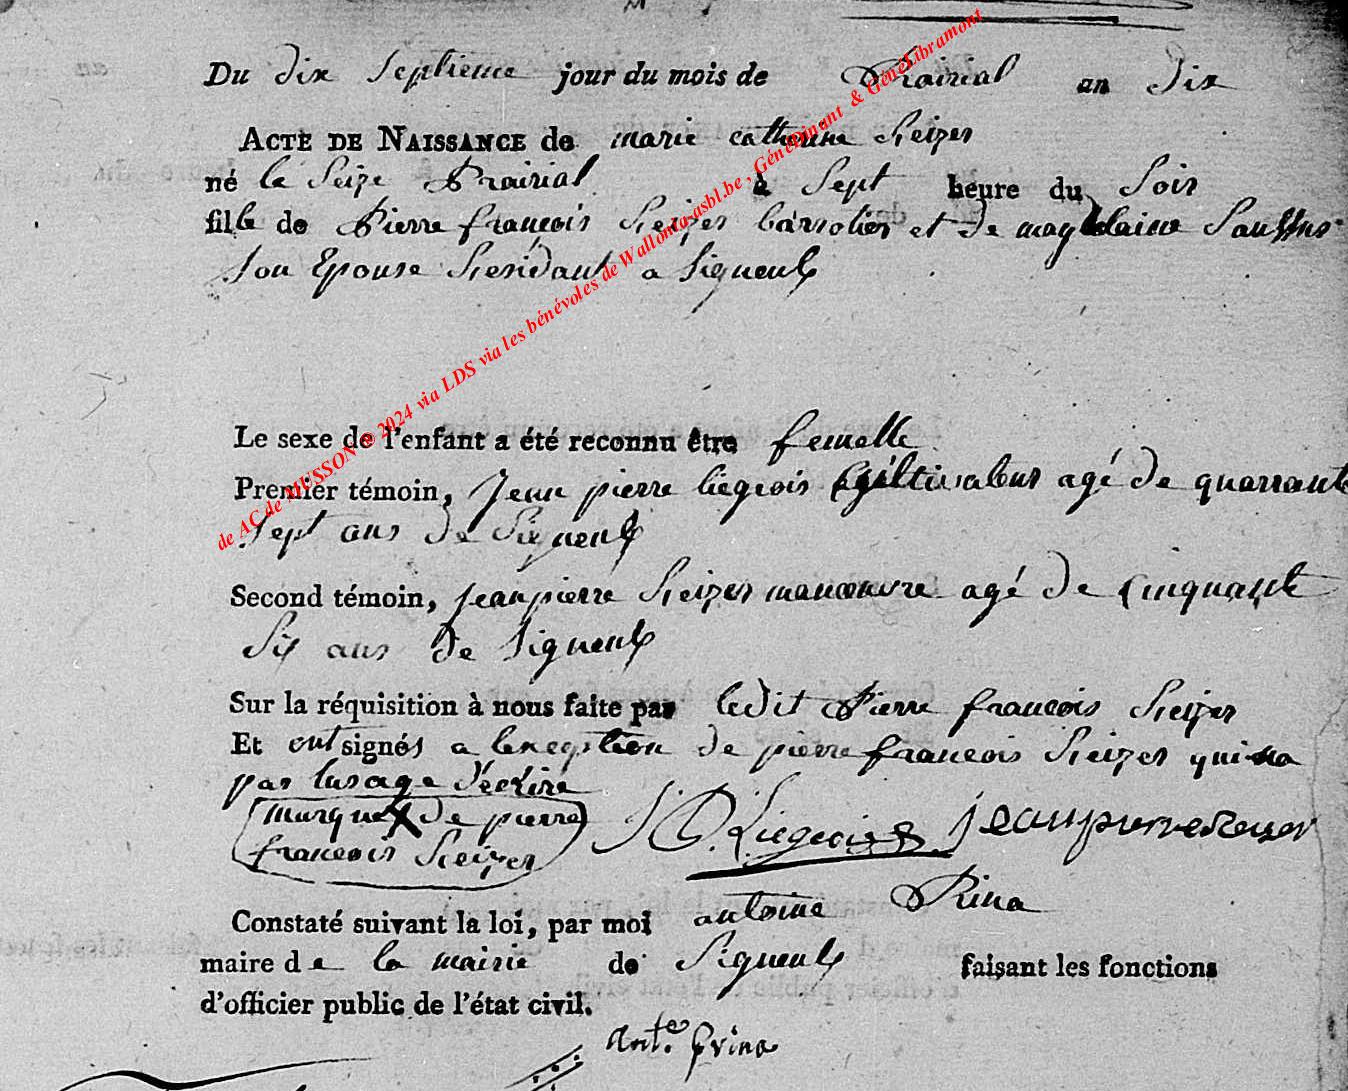 Du dix septieme jour du mois de Prairial an dix
ACTE DE NAISSANCE de marie catherine Reizer
né le seize Prairial à sept heure du soir
fille de Pierre françois Reizer et de magdelaine
son Epouse Residant a signeulx
Le sexe de l'enfant a été reconnu être femelle
Premier témoin, Jean pierre liegeois Cultivateur agé de quarrante
sept ans de Signeulx
Second témoin, jean pierre Reizer manoeuvre agé de Cinquante
Six ans de signeulx
Sur la réquisition à nous faite par ledit Pierre françois Reizer
Et ont signés a lexeption de pierre françois Reizer qui na
pas lusage d'écrire
marque X de pierre
françois Reizer
J P Liegeois jean pierre Reser
Constaté suivant la loi, par moi antoine Prina
maire de la mairie de Signeulx faisant les fonctions
d'officier public de l'état civil.
Ant.e Prina
de AC de MUSSON © 2024 via LDS via les bénévoles de Wallonia-asbl.be, GénéDinant & GénéLibramont